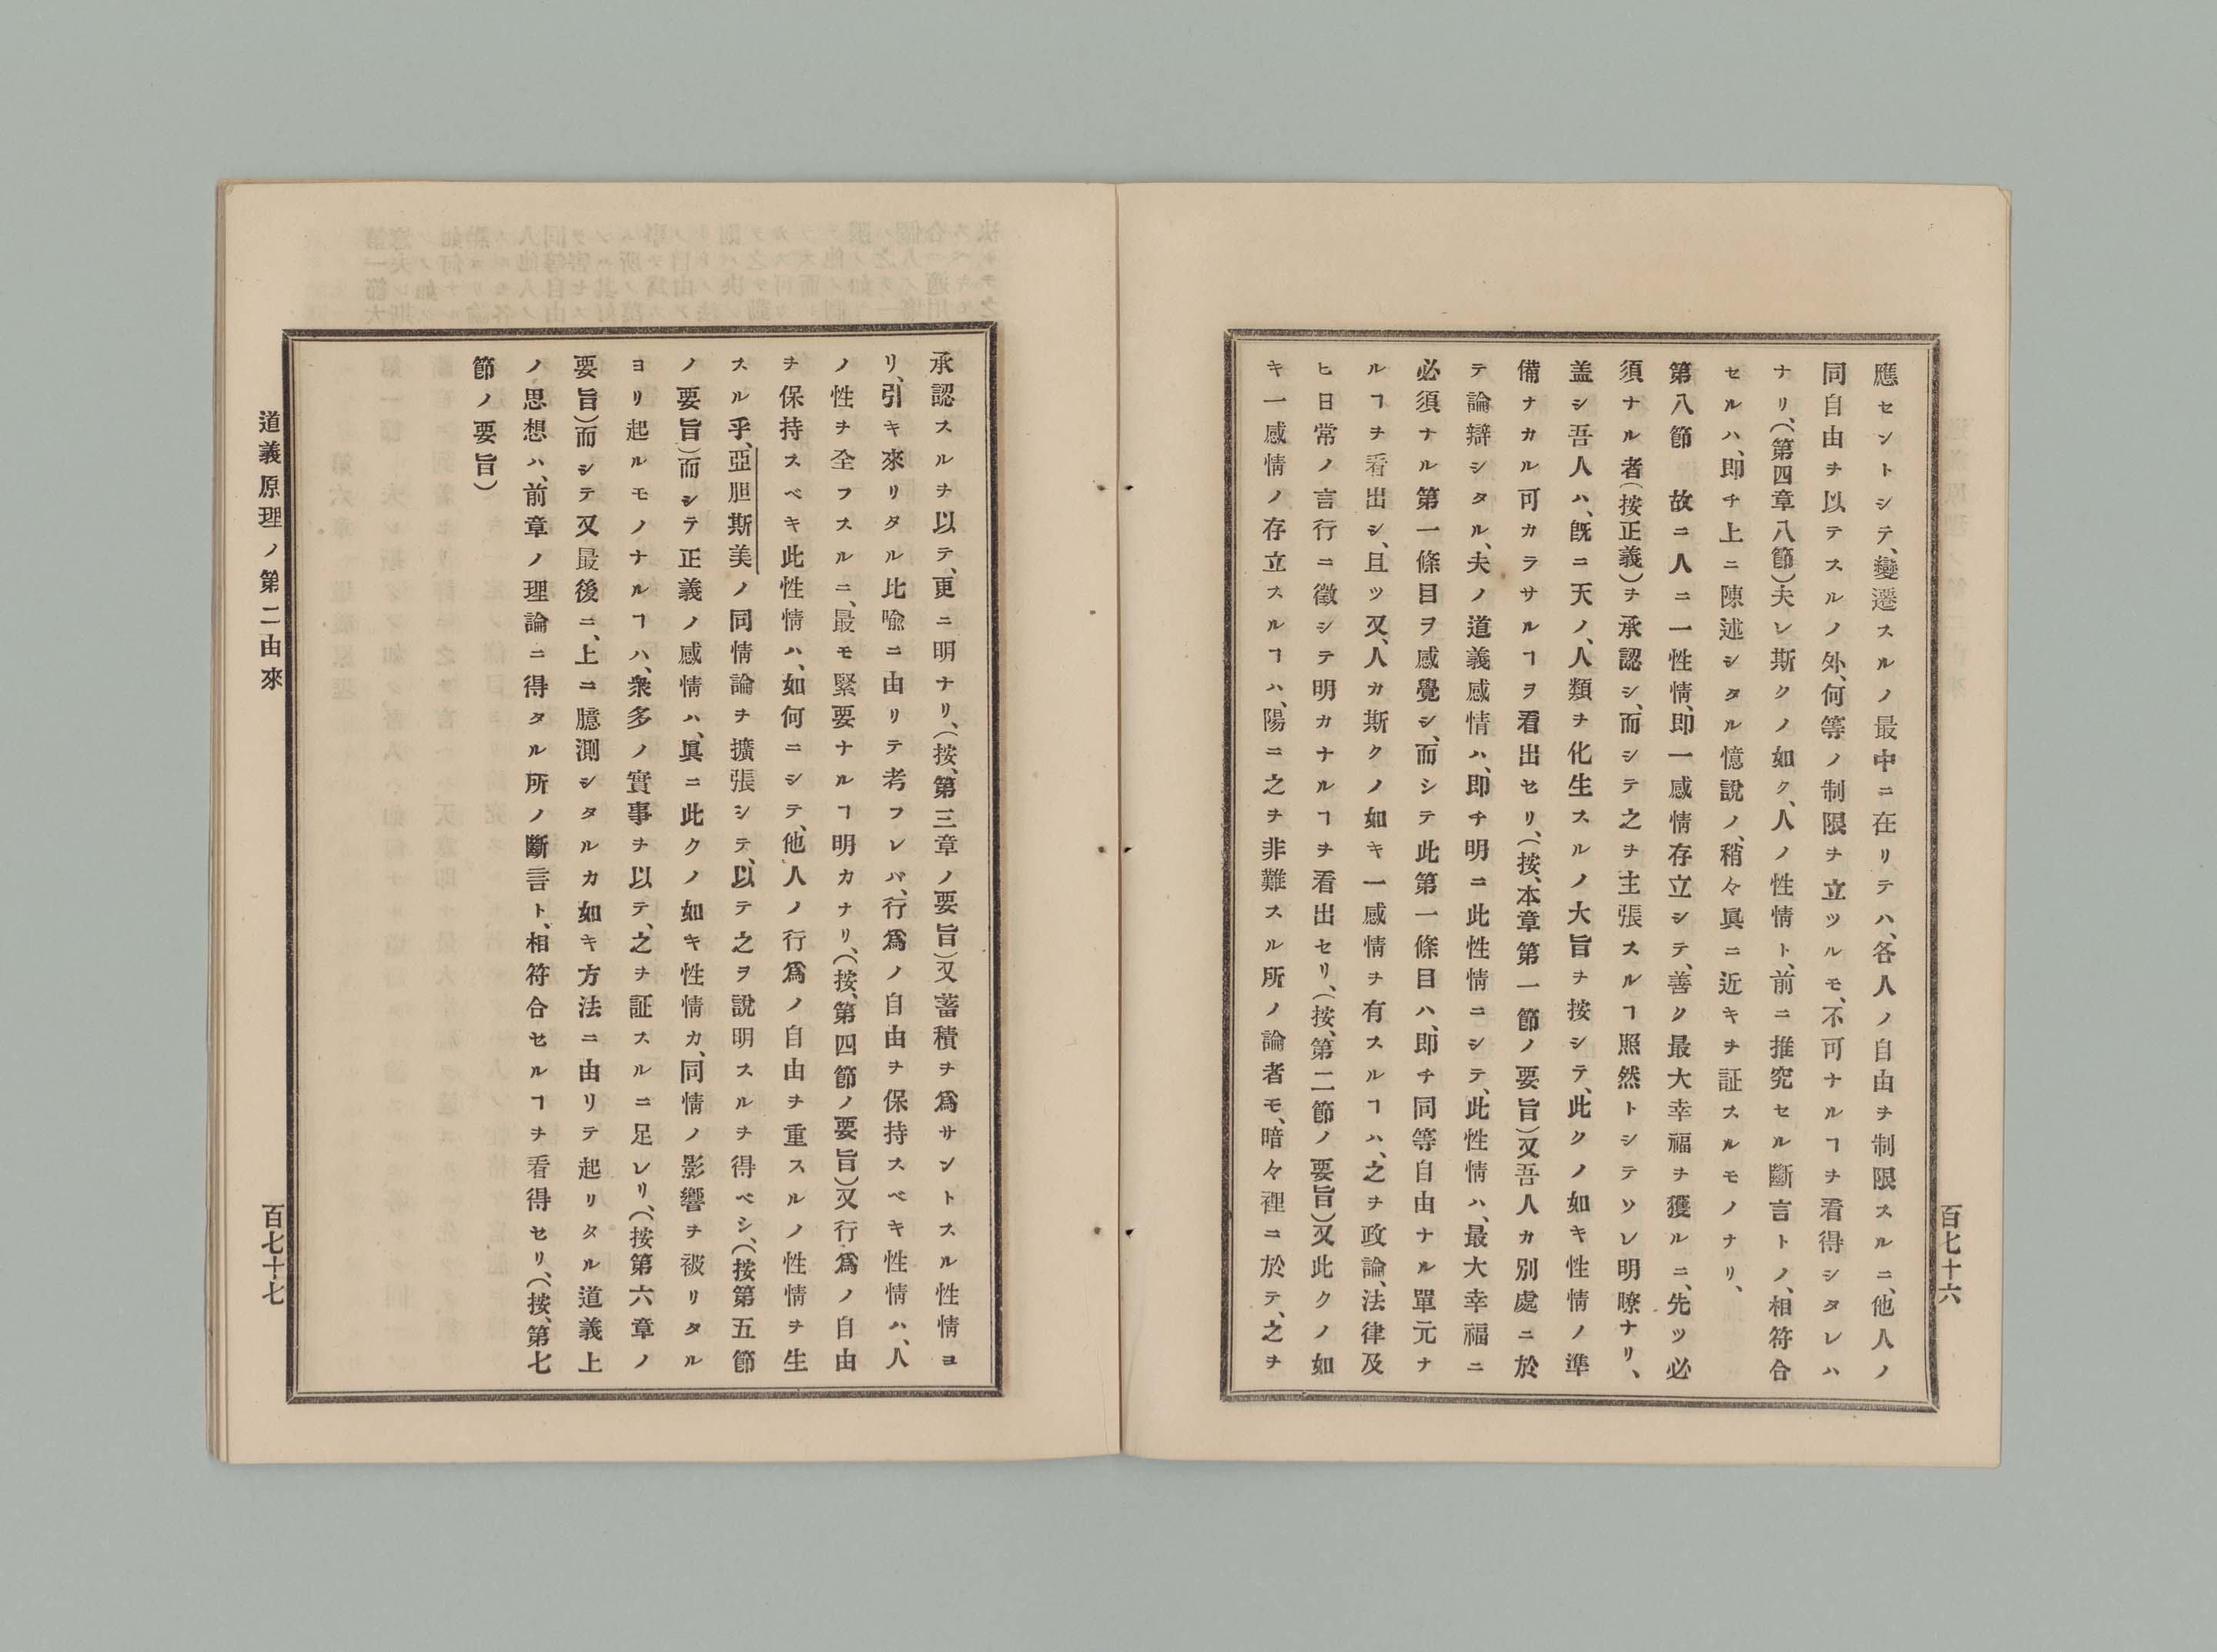 應セントシテ、變遷スルノ最中ニ在リテハ、各人ノ自由ヲ制限スルニ、他人ノ
同自由ヲ以テスルノ外、何等ノ制限ヲ立ツルモ、不可ナルヿヲ看得シタレハ
ナリ、(第四章八節)夫レ斯クノ如ク、人ノ性情ト、前ニ推究セル斷言トノ、相符合
セルハ、即チ上ニ陳述シタル憶說ノ、稍々眞ニ近キヲ証スルモノナリ、
第八節　故ニ人ニ一性情、即一感情存立シテ、善ク最大幸福ヲ獲ルニ、先ツ必
須ナル者(按正義)ヲ承認シ、而シテ之ヲ主張スルヿ照然トシテソレ明瞭ナリ、
盖シ吾人ハ、旣ニ天ノ、人類ヲ化生スルノ大旨ヲ按シテ、此クノ如キ性情ノ準
備ナカル可カラサルヿヲ看出セリ、(按、本章第一節ノ要旨)又吾人カ別處ニ於
テ論辯シタル、夫ノ道義感情ハ、即チ明ニ此性情ニシテ、此性情ハ、最大幸福ニ
必須ナル第一條目ヲ感覺シ、而シテ此第一條目ハ、即チ同等自由ナル單元ナ
ルヿヲ看出シ、且ツ又、人カ斯クノ如キ一感情ヲ有スルヿハ、之ヲ政論、法律及
ヒ日常ノ言行ニ徵シテ明カナルヿヲ看出セリ、(按、第二節ノ要旨)又此クノ如
キ一感情ノ存立スルヿハ、陽ニ之ヲ非難スル所ノ論者モ、暗々裡ニ於テ、之ヲ
百七十六
承認スルヲ以テ、更ニ明ナリ、(按、第三章ノ要旨)又蓄積ヲ爲サントスル性情ヨ
リ、引キ來リタル比喩ニ由リテ考フレバ、行爲ノ自由ヲ保持スベキ性情ハ、人
ノ性ヲ全フスルニ、最モ緊要ナルヿ明カナリ、(按、第四節ノ要旨)又行爲ノ自由
ヲ保持スベキ此性情ハ、如何ニシテ、他人ノ行爲ノ自由ヲ重スルノ性情ヲ生
スル乎、亞胆斯美ノ同情論ヲ擴張シテ、以テ之ヲ說明スルヲ得ベシ、(按第五節
ノ要旨)而シテ正義ノ感情ハ、眞ニ此クノ如キ性情カ、同情ノ影響ヲ被リタル
ヨリ起ルモノナルヿハ、衆多ノ實事ヲ以テ、之ヲ証スルニ足レリ、(按第六章ノ
要旨)而シテ又最後ニ、上ニ臆測シタルカ如キ方法ニ由リテ起リタル道義上
ノ思想ハ、前章ノ理論ニ得タル所ノ斷言ト、相符合セルヿヲ看得セリ、(按、第七
節ノ要旨)
道義原理ノ第二由來
百七十七